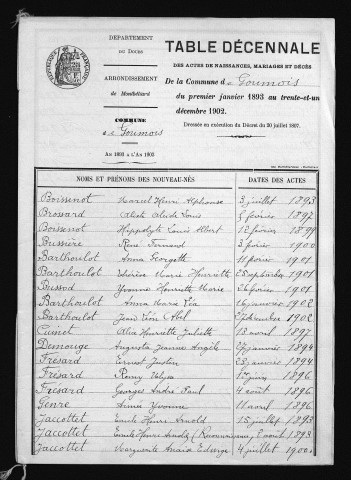 DÉPARTEMENT
DU DOUBS
ARRONDISSEMENT
de Montbéliard
COMMUNE
de Goumois
AN 1893 A L'AN 1902
TABLE DÉCENNALE
DES ACTES DE NAISSANCES, MARIAGES ET DÉCÈS
De la Commune de Goumois
du premier janvier 1893 au trente-et-un
décembre 1902.
Dressée en exécution du Décret du 20 juillet 1807.
NOMS ET PRÉNOMS DES NOUVEAU-NÉS DATES DES ACTES
Boissenot Marcel Henri Alphonse 3 juillet 1893
Brossard Louis 5 février 1897
Boissenot Hippolyte Louis Albert 12 février 1899
Bussière René Fernand 3 février 1900
Barthoulot Anna Georgette 11 février 1901
Barthoulot Marie Henriette 25 septembre 1901
Bussod Yvonne Henriette Marie 26 février 1901
Barthoulot Anna Maria 16 janvier 1902
Barthoulot Jean Abel 1902
Cuinet Henriette Juliette 13 avril 1897
Demouge Augusta Jeanne Angèle 27 janvier 1894
Frésard Ernest Justin 23 janvier 1894
Frésard Remy 17 juin 1896
Frésard Georges André Paul 4 août 1896
Genre Anna Yvonne 11 avril 1896
Jaccottet Emile Henri Arnold 15 juillet 1893
Jaccottet Emile Henri Arnold (Reconnaissance) 2 août 1893
Jaccottet Marguerite Edwige 4 juillet 1900